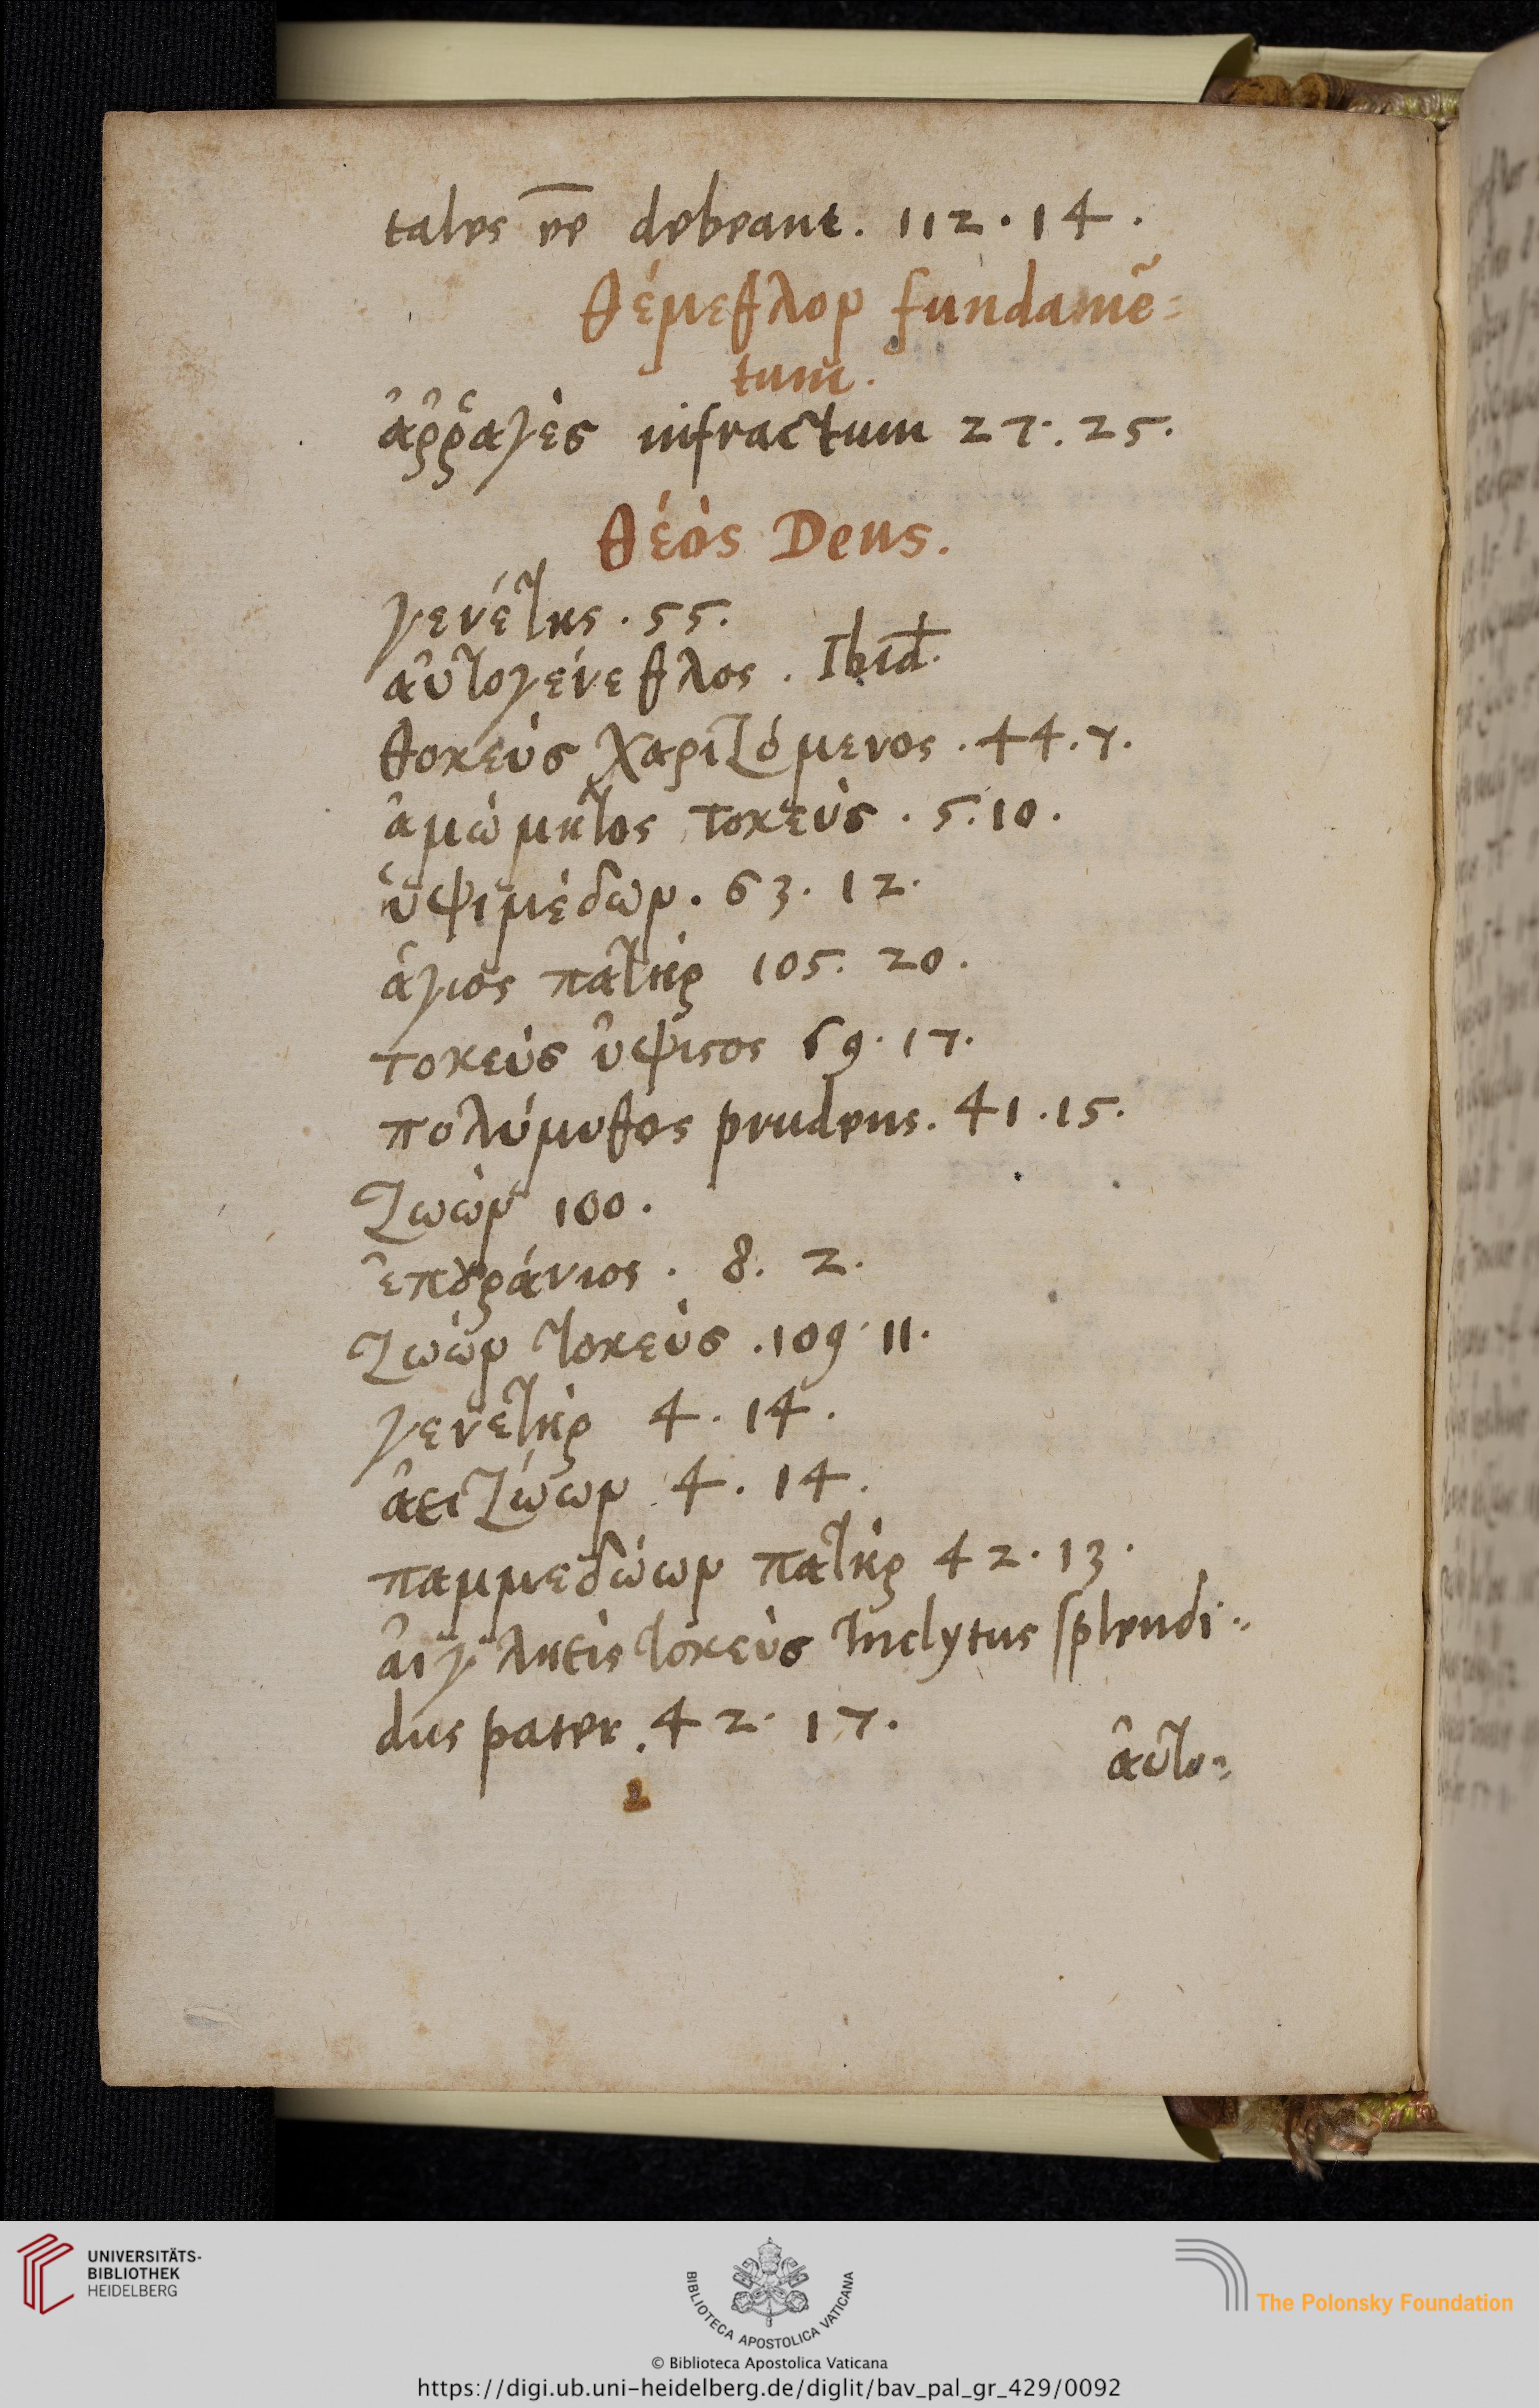 tales e̅e̅ debeant. 112. 14.
θέμεθλον fundamē=
tum.
ἀῤῥαγὲς infractum 27. 25.
θέὸς Deus.
γενέτης. 55.
αὐτογένεθλος. Ibid.
θοκεὺς χαριζόμενος. 44. 7.
ἀμώμητος τοκεὺς. 5. 10.
ὑψιμέδων. 63. 12.
ἅγιος πατὴρ 105. 20.
τοκεὺς ὕψιστος 69. 17.
πολύμυθος prudens. 41. 15.
ζωὼν 100.
ἐπουράνιος. 8. 2.
ζωὼν τοκεὺς. 109. 11.
γενετὴρ 4. 14.
ἀειζώων 4. 14.
παμμεδώων πατὴρ 42. 13.
αἰγλήεις τοκεὺς Inclytus splendi=
dus pater. 42. 17.
αὐτο=
UNIVERSITÄTS-
BIBLIOTHEK
HEIDELBERG
BIBLIOTECA APOSTOLICA VATICANA
The Polonsky Foundation
© Biblioteca Apostolica Vaticana
https://digi.ub.uni-heidelberg.de/diglit/bav_pal_gr_429/0092